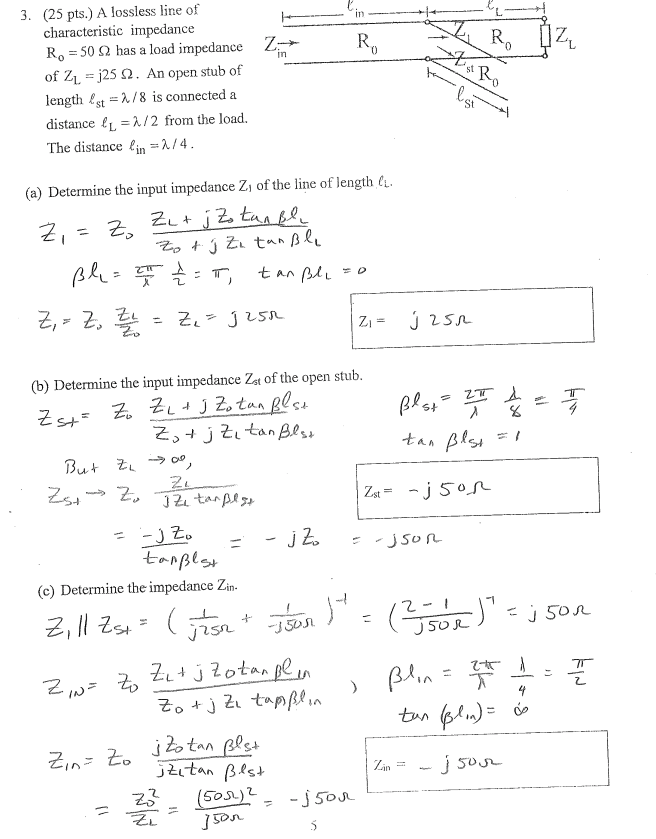 3. (25 pts.) A lossless line of
characteristic impedance
R₀ = 50 Ω has a load impedance
of Z_L = j25 Ω. An open stub of
length ℓ_st = λ/8 is connected a
distance ℓ_L = λ/2 from the load.
The distance ℓ_in = λ/4.
ℓ_in ℓ_L
Z_in R₀ Z₁ R₀ Z_L
Z_st R₀
ℓ_St
(a) Determine the input impedance Z₁ of the line of length ℓ_L.
Z₁ = Z₀ (Z_L + jZ₀ tan βl_L) / (Z₀ + jZ_L tan βl_L)
βl_L = 2π/λ λ/2 = π, tan βl_L = 0
Z₁ = Z₀ Z_L/Z₀ = Z_L = j25Ω
Z₁ = j25Ω
(b) Determine the input impedance Z_st of the open stub.
Z_st = Z₀ (Z_L + jZ₀ tan βl_st) / (Z₀ + jZ_L tan βl_st)
βl_st = 2π/λ λ/8 = π/4
tan βl_st = 1
But Z_L → ∞,
Z_st → Z₀ Z_L / (jZ_L tan βl_st)
Z_st = -j50Ω
= -jZ₀ / tan βl_st = -jZ₀ = -j50Ω
(c) Determine the impedance Zin.
Z₁ || Z_st = (1/j25Ω + 1/-j50Ω)⁻¹ = ((2-1)/j50Ω)⁻¹ = j50Ω
Z_IN = Z₀ (Z_L + jZ₀ tan βl_in) / (Z₀ + jZ_L tan βl_in) , βl_in = 2π/λ λ/4 = π/2
tan (βl_in) = ∞
Z_in = Z₀ (jZ₀ tan βl_st) / (jZ_L tan βl_st)
Z_in = -j50Ω
= Z₀²/Z_L = (50Ω)²/j50Ω = -j50Ω
5